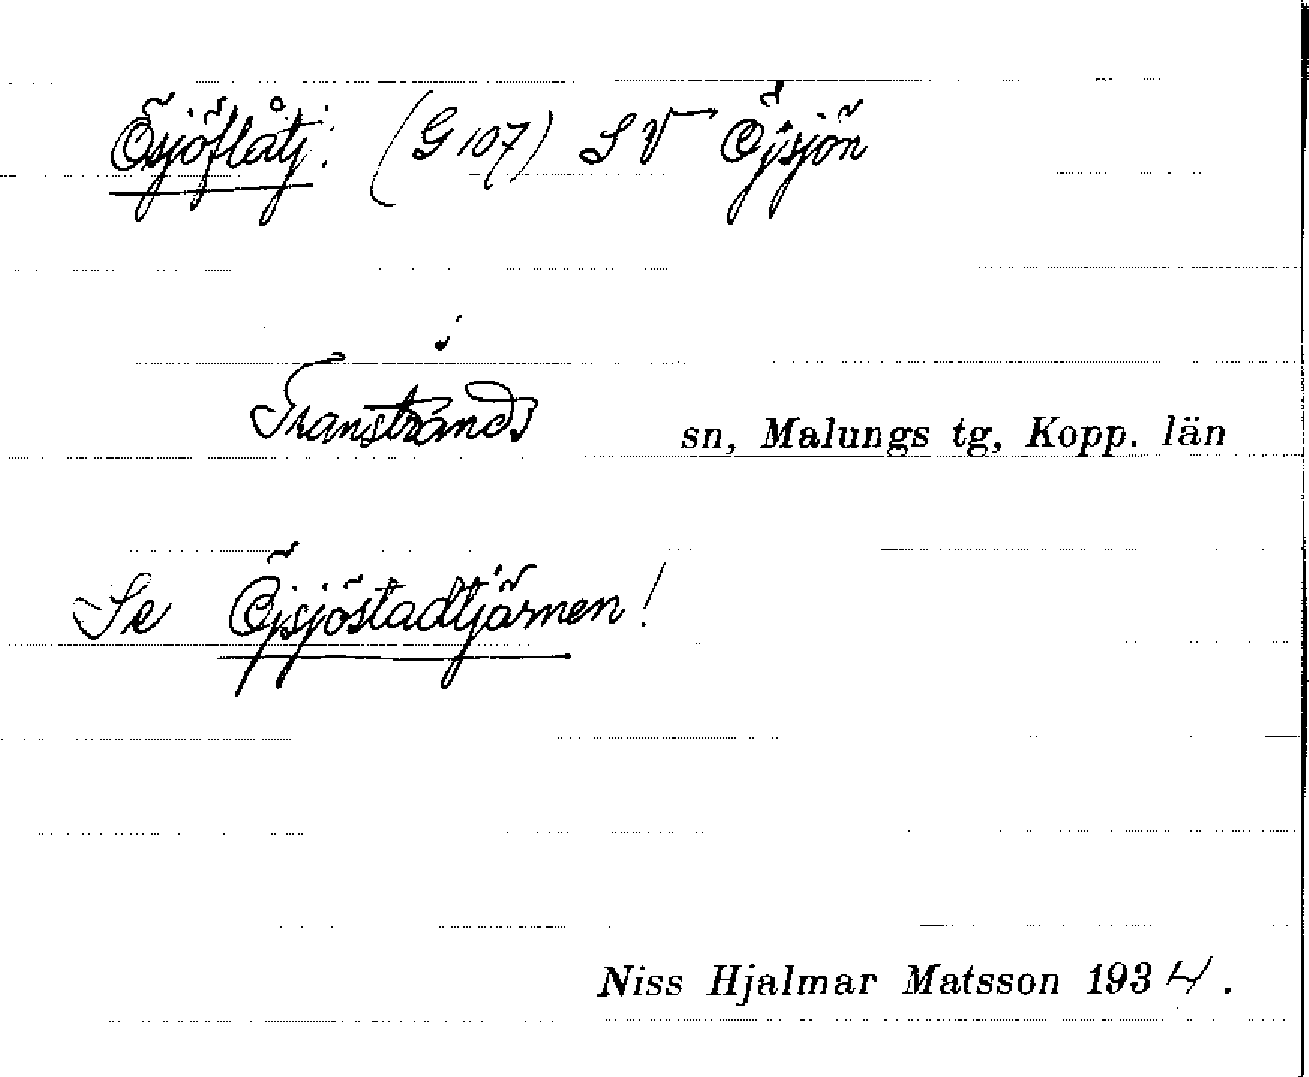 Ösjöflåtj: (G 107) SV Öjsjön
i
Transtrands sn, Malungs tg, Kopp. län
Se Öjsjöstadtjärnen!
Niss Hjalmar Matsson 1934.